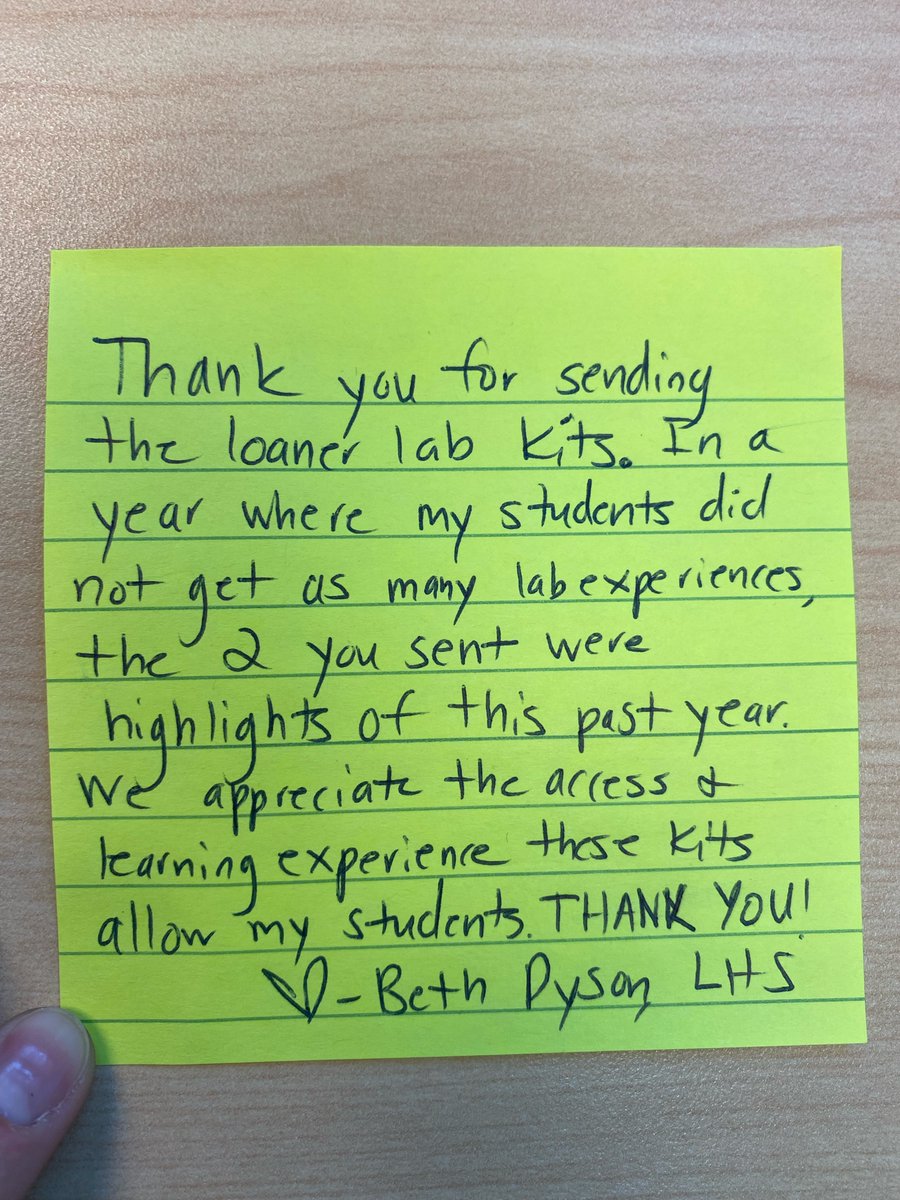 Thank you for sending
the loaner lab kits. In a
year where my students did
not get as many lab experiences,
the 2 you sent were
highlights of this past year.
We appreciate the access &
learning experience these kits
allow my students. THANK YOU!
♡ - Beth Dyson, LHS